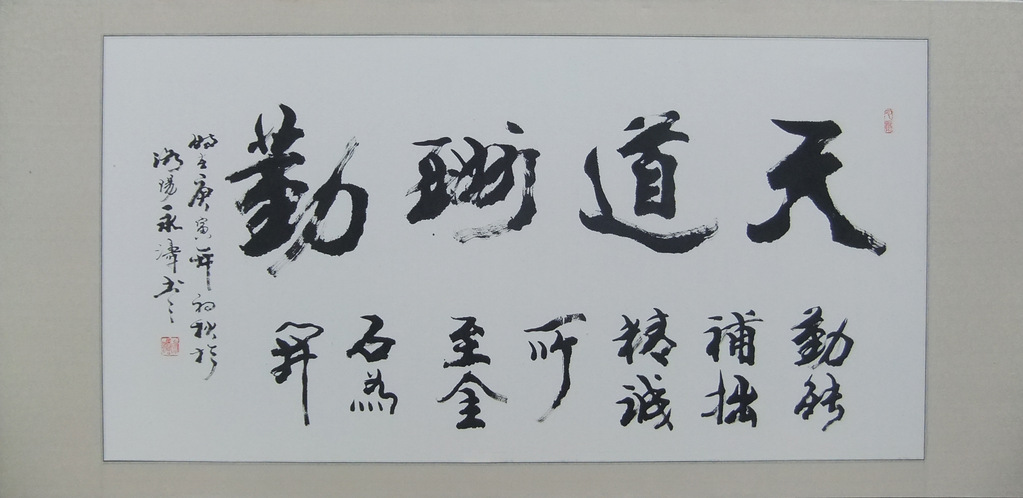 天道酬勤
勤能
補拙
精誠
所
至金
石為
開
時在庚寅年初秋於
陽永书之